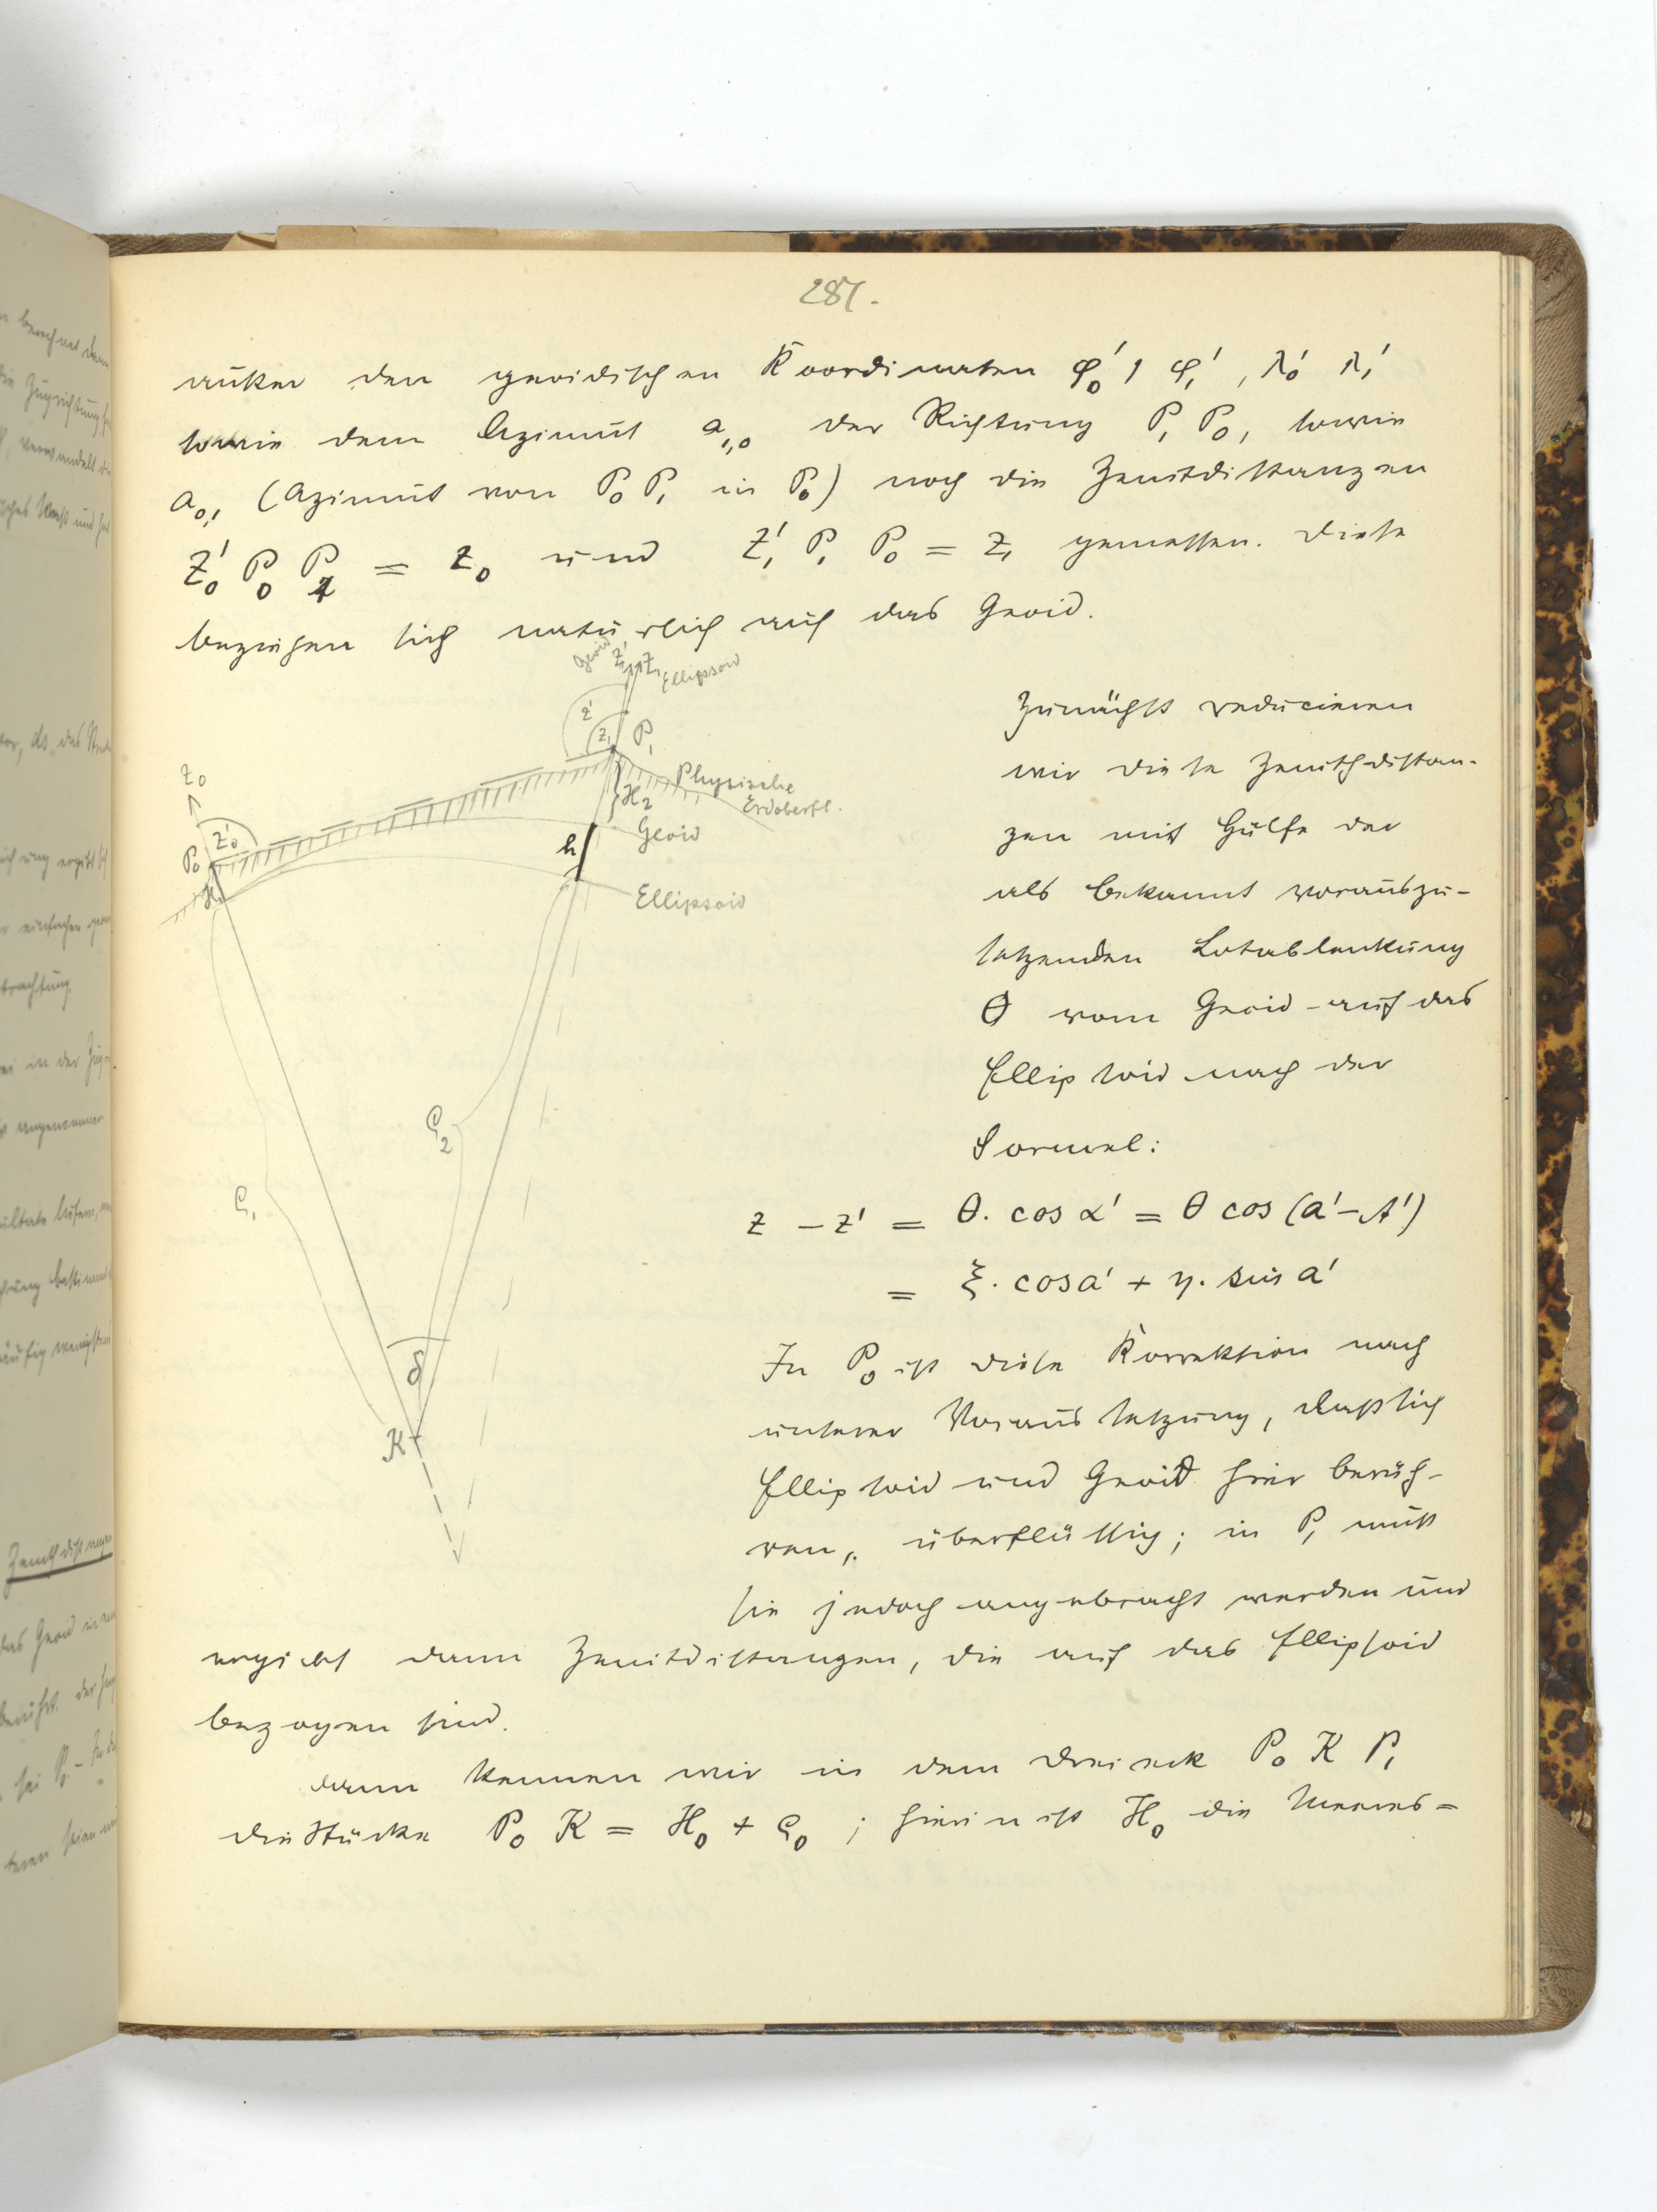 287.
außer den geoidischen Koordinaten φ₀', φ₁', λ₀' λ₁'
sowie dem Azimut a₁,₀ der Richtung P₁ P₀, sowie
a₀,₁ (Azimut von P₀ P₁ in P₀) noch die Zenitdistanzen
Z₀' P₀ P₁ = z₀ und Z₁' P₁ P₀ = z₁ gemessen. Diese
beziehen sich natürlich auf das Geoid.
Geoid Z₁' Z₁ Ellipsoid
z' z₁ P₁
Physische
Erdoberfl.
H₂
Geoid
h
Ellipsoid
z₀
z₀'
P₀
H
ϱ₂
ϱ₁
δ
K
Zunächst reducieren
wir diese Zenithdistan-
zen mit Hülfe der
als bekannt vorauszu-
setzenden Lotablenkung
θ vom Geoid auf das
Ellipsoid nach der
Formel:
z - z' = θ. cos α' = θ cos (a' - A')
= ξ. cos a' + η. sin a'
In P₀ ist diese Korrektion nach
unserer Voraussetzung, daß sich
Ellipsoid und Geoid hier berüh-
ren, überflüssig; in P₁ muß
sie jedoch angebracht werden und
ergiebt dann Zenitdistanzen, die auf das Ellipsoid
bezogen sind.
Dann kennen wir in dem Dreieck P₀ K P₁
die Stücke P₀ K = H₀ + ϱ₀ ; hierin ist H₀ die Meeres=